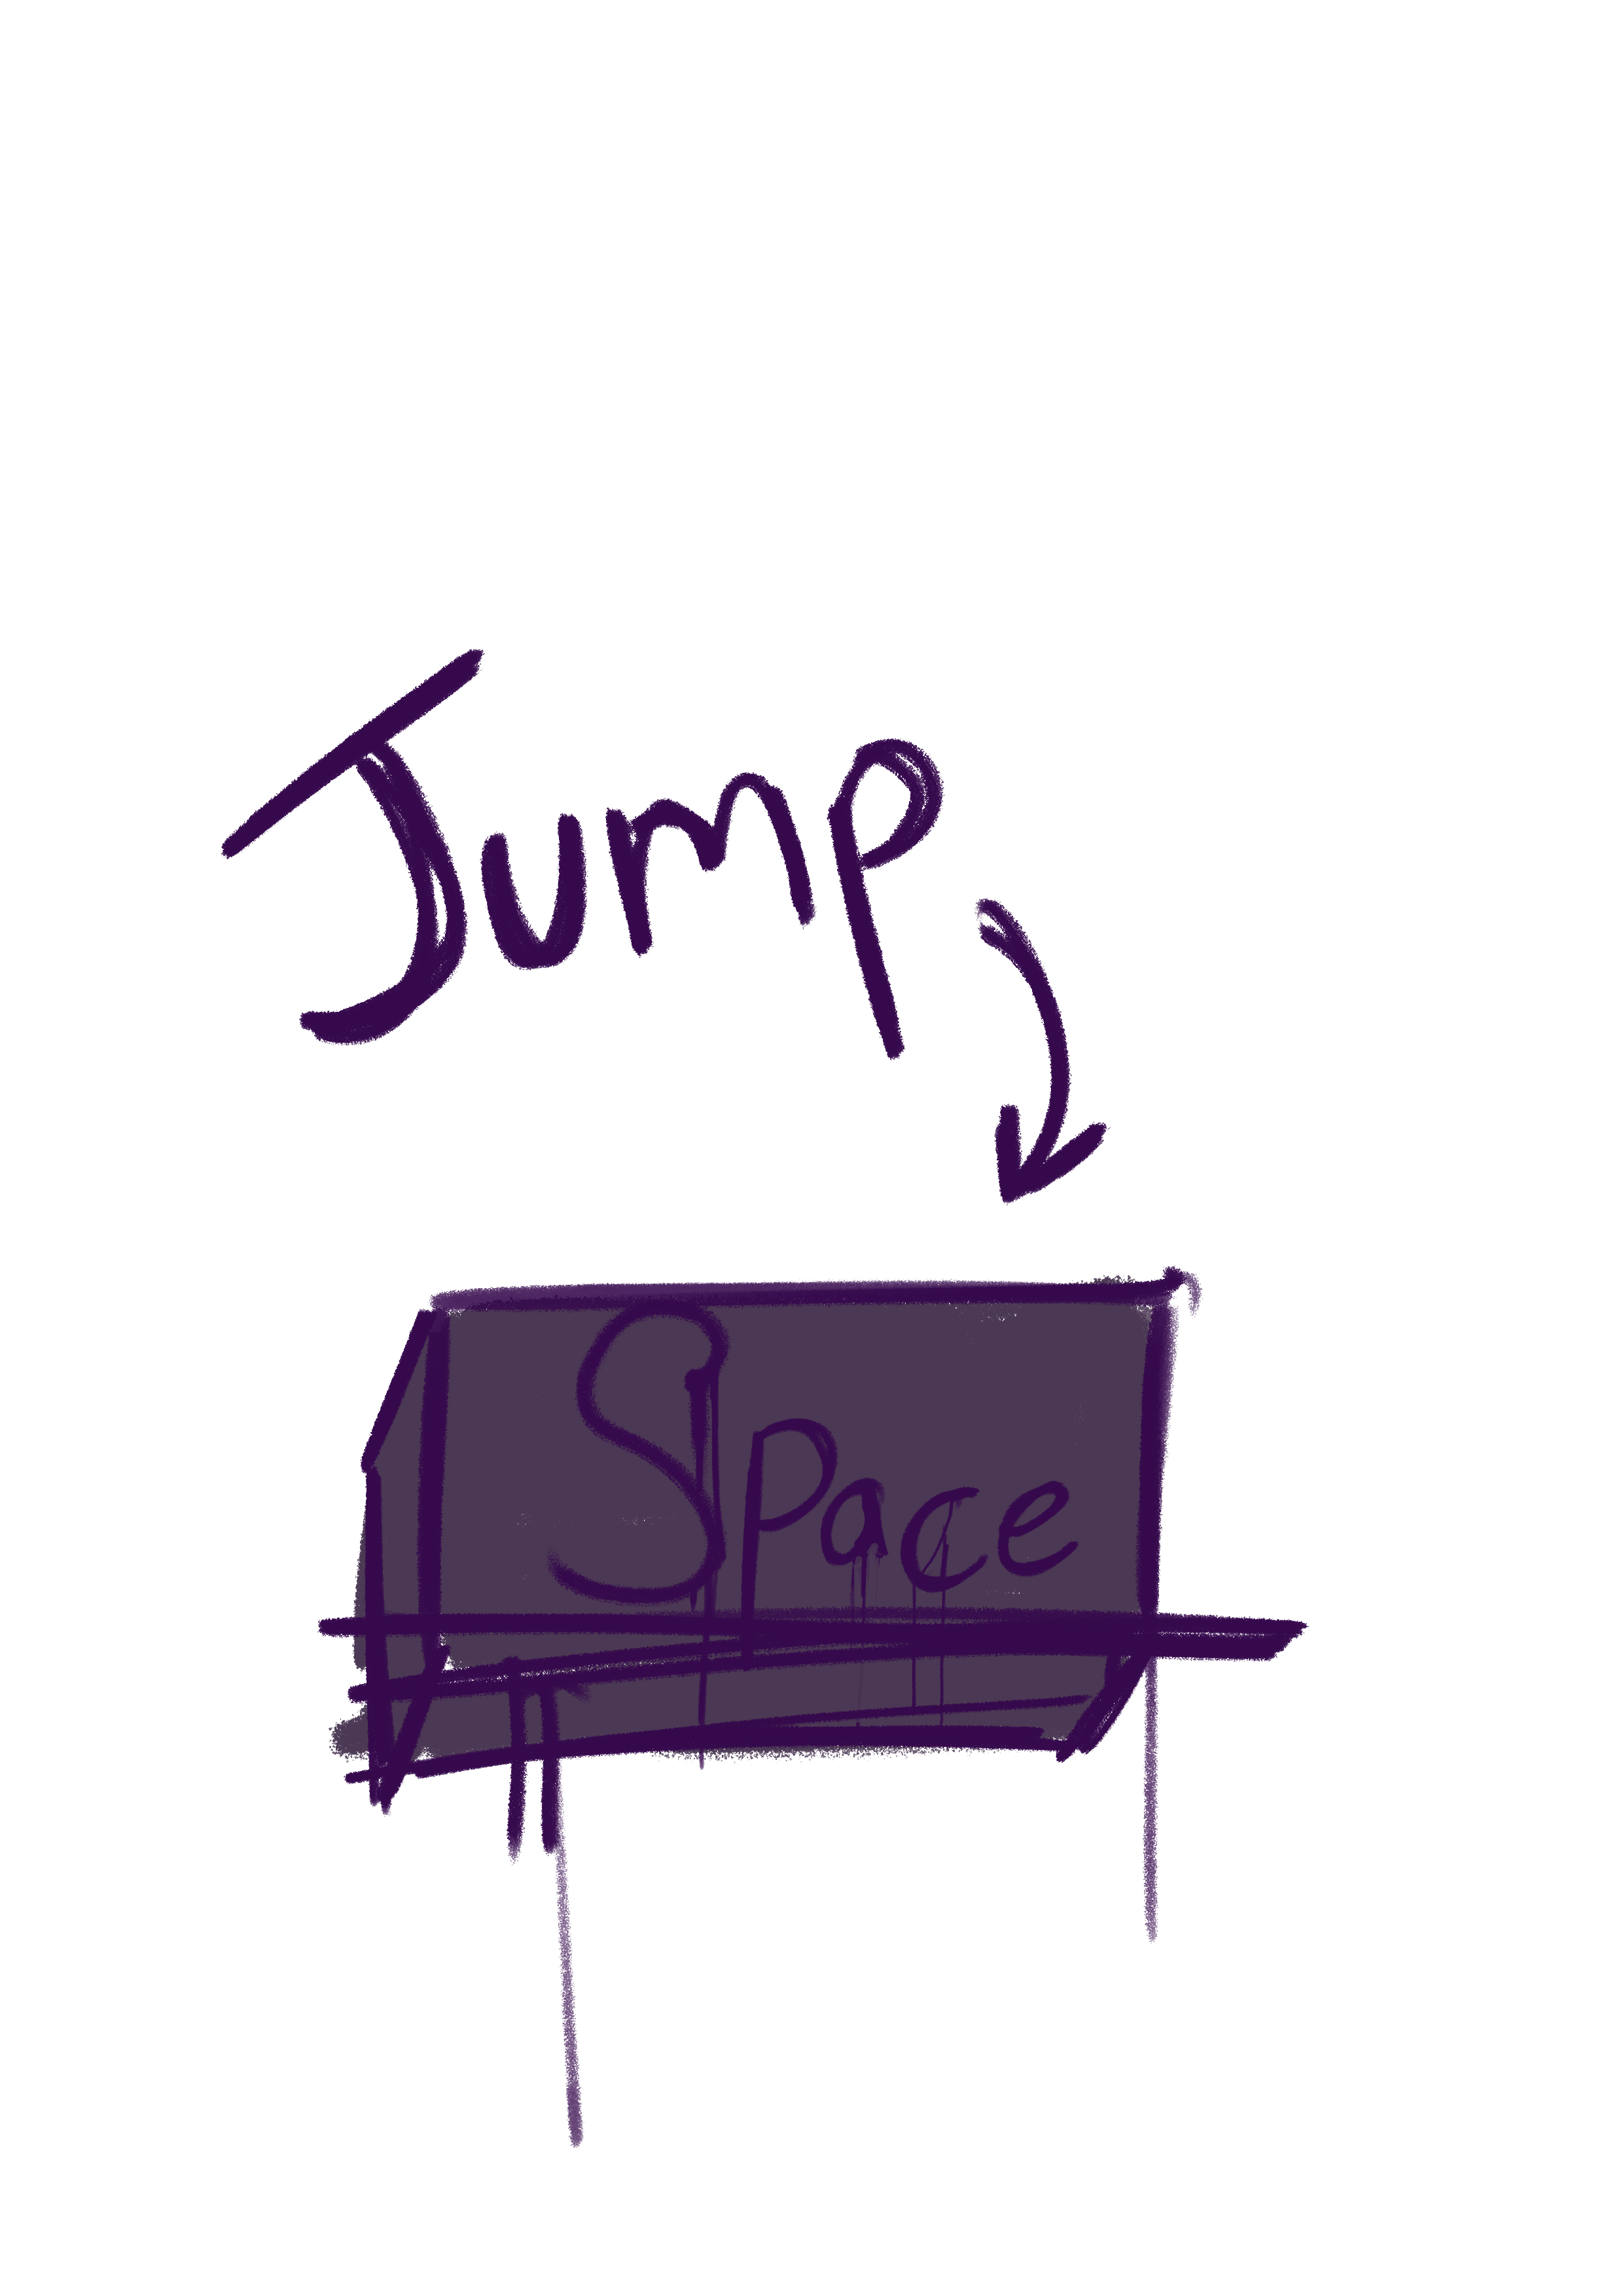 Jump
Space